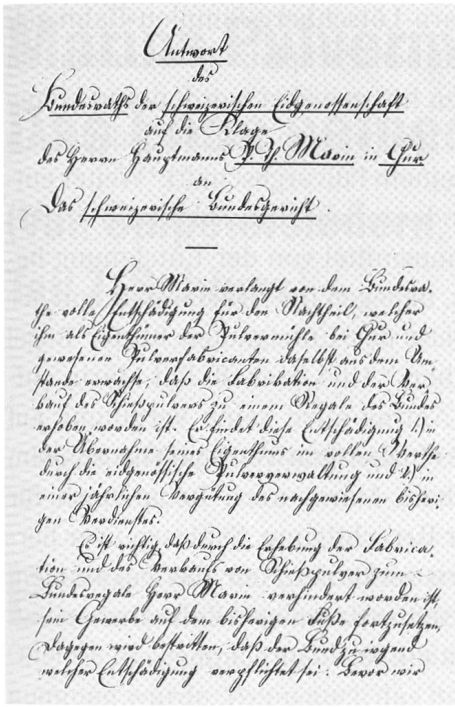 Antwort
des
Bundesraths der schweizerischen Eidgenossenschaft
auf die Klage
des Herrn Hauptmanns P. Th. Marin in Chur
an
Das schweizerische Bundesgericht.
Herr Marin verlangt von dem Bundesra-
the volle Entschädigung für den Nachtheil, welcher
ihm als Eigenthümer der Pulvermühle bei Chur und
gewesenen Pulverfabricanten daselbst aus dem Um-
stande erwachse, daß die Fabrikation und der Ver-
kauf des Schießpulvers zu einem Regale des Bundes
erhoben worden ist. Er findet diese Entschädigung 1.) in
der Übernahme seines Eigenthums im vollen Werthe
durch die eidgenössische Pulververwaltung und 2.) in
einer jährlichen Vergütung des nachgewiesenen bisheri-
gen Verdienstes.
Es ist richtig, daß durch die Erhebung der Fabrica-
tion und des Verkaufs von Schießpulver zum
Bundesregale Herr Marin verhindert worden ist,
sein Gewerbe auf dem bisherigen Fuße fortzusetzen,
Dagegen wird bestritten, daß der Bund zu irgend
welcher Entschädigung verpflichtet sei. Bevor wir